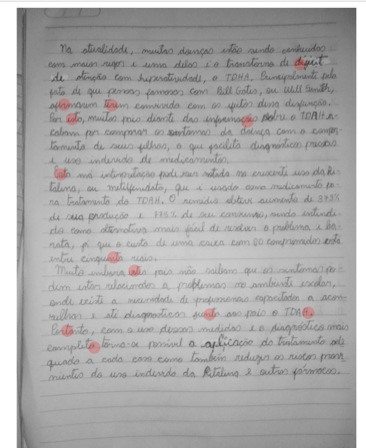 Na atualidade, muitas doenças estão sendo conhecidas
com maior rigor e uma delas é o transtorno de déficit
de atenção com hiperatividade, o TDHA. Principalmente pelo
fato de que pessoas famosas com Bill Gates, ou Will Smith,
afirmaram terem convivido com os efeitos dessa disfunção.
Por isto, muitos pais diante das informações sobre o TDAH a-
cabam por comparar os sintomas da doença com o compor-
tamento de seus filhos, o que facilita diagnósticos precoces
e uso indevido de medicamentos.
Esta má interpretação pode ser notada no crescente uso da Ri-
talina, ou metilfenidato, que é usado como medicamento pa-
ra tratamento do TDAH. O remédio obteve aumento de
de sua produção e 775% de seu consumo, sendo entendi-
do como alternativa mais fácil de resolver o problema e ba-
rata, já que o custo de uma caixa com 20 comprimidos está
entre cinquenta reais.
Muito embora os pais não saibam que os sintomas po-
dem estar relacionados a problemas no ambiente escolar,
onde existe a necessidade de profissionais capacitados a acon-
selhar e até diagnosticar junto aos pais o TDAH.
Portanto, com o uso dessas medidas e o diagnóstico mais
completo torna-se possível a aplicação do tratamento ade-
quado a cada caso como também reduzir os riscos prove-
nientes do uso indevido da Ritalina e outros fármacos.